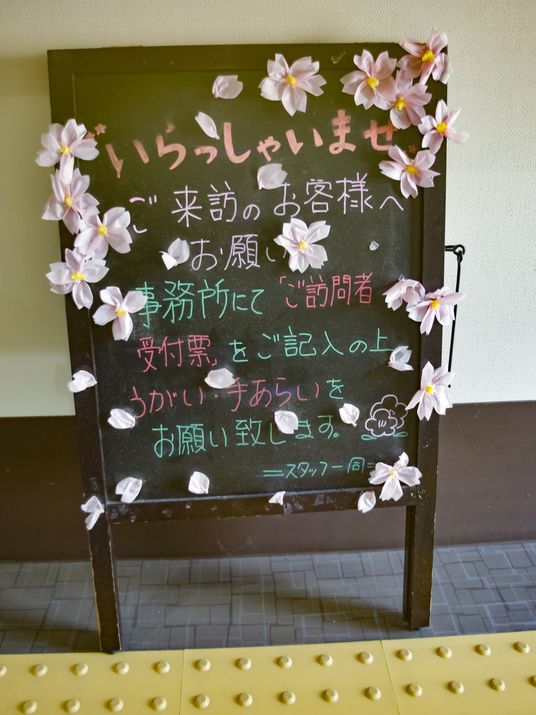 いらっしゃいませ
ご来訪のお客様へ
お願い
事務所にて「ご訪問者
受付票」をご記入の上
うがい・手あらいを
お願い致します。
=スタッフ一同=